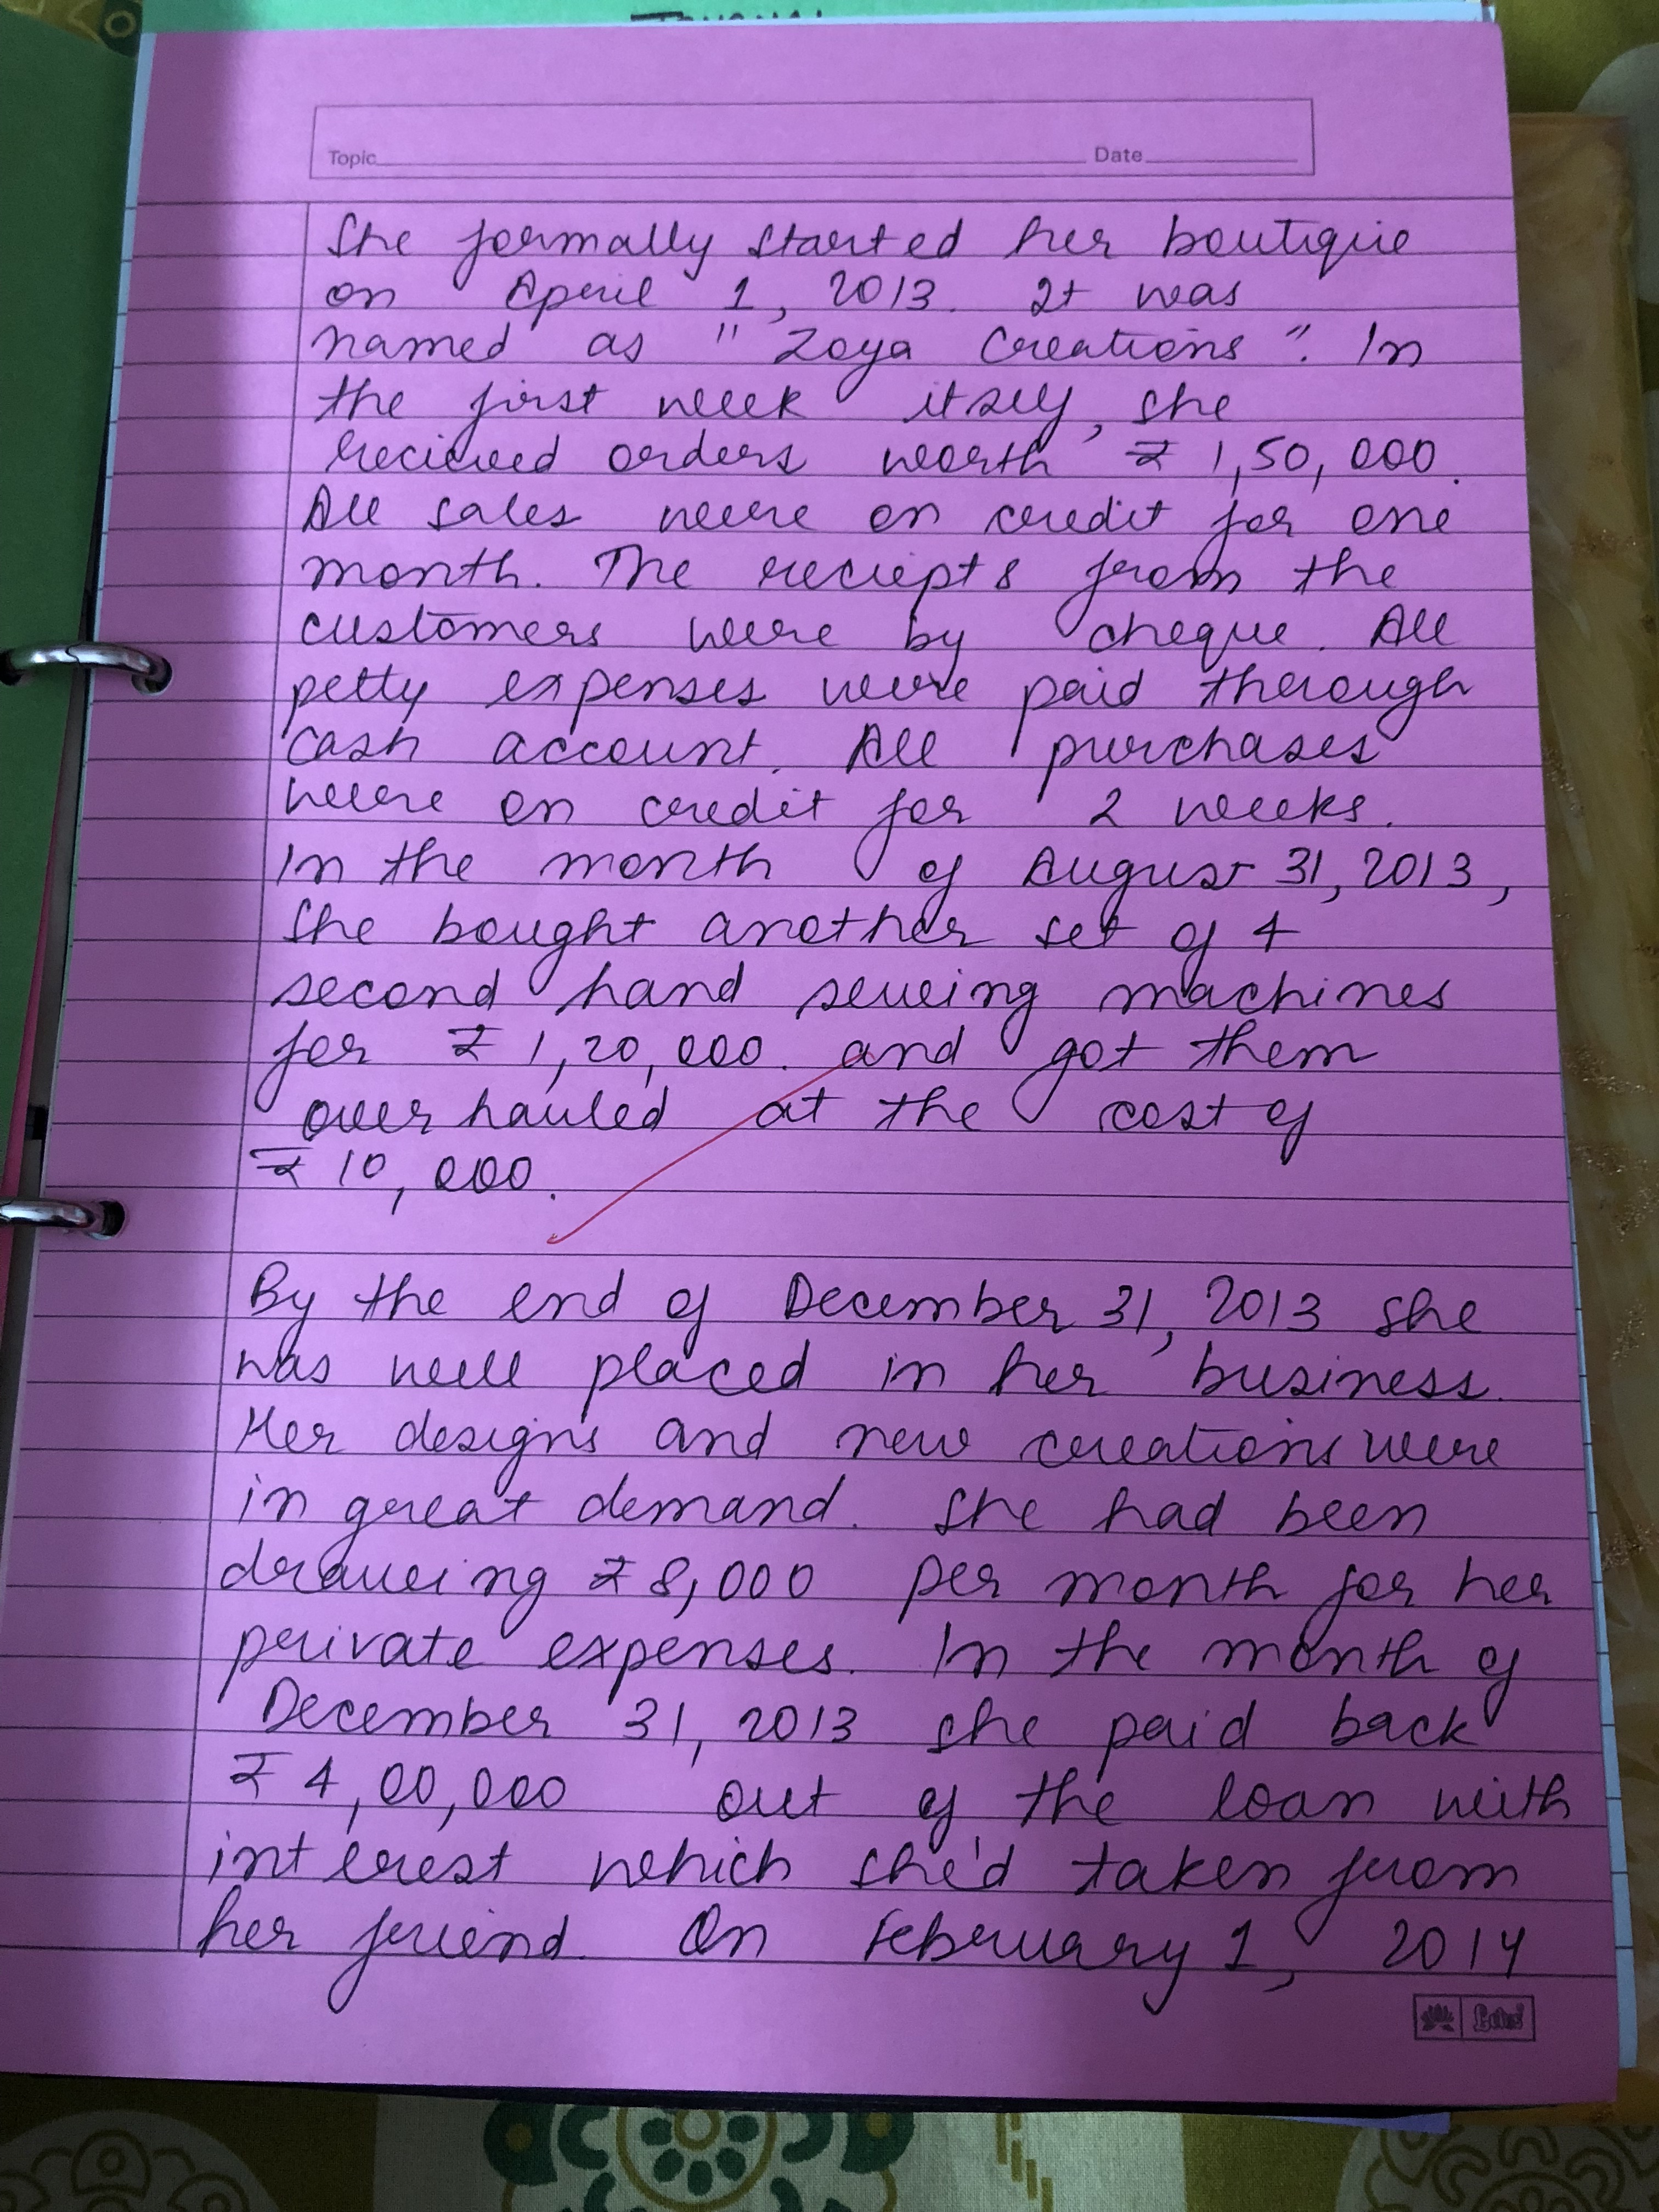 Topic Date
She formally started her boutique
on April 1, 2013. It was
named as "Zoya Creations". In
the first week itself, she
recieved orders worth ₹ 1,50,000.
All sales were on credit for one
month. The reciepts from the
customers were by cheque. All
petty expenses were paid through
cash account. All purchases
were on credit for 2 weeks.
In the month of August 31, 2013,
She bought another set of 4
second hand sewing machines
for ₹ 1,20,000. and got them
over hauled at the cost of
₹ 10,000.
By the end of December 31, 2013 she
was well placed in her business.
Her designs and new creations were
in great demand. She had been
drawing ₹ 8,000 per month for her
private expenses. In the month of
December 31, 2013 she paid back
₹ 4,00,000 out of the loan with
interest which she'd taken from
her friend. On February 1, 2014
Lotus